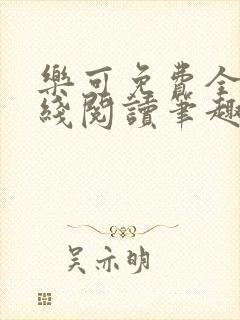 樂可免費全
綫閱讀筆趣
吴亦明